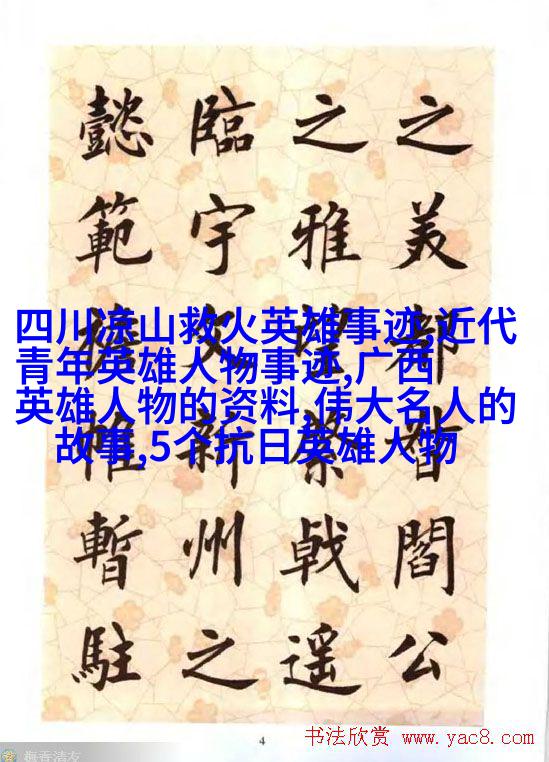 之美都督閻公
之雅望棨戟遥
臨宇文新州之
懿範襜帷暫駐
四川凉山救火英雄事迹,近代
青年英雄人物事迹,广西
英雄人物的资料,伟大名人的
故事,5个抗日英雄人物
4
书法欣赏 www.yac8.com